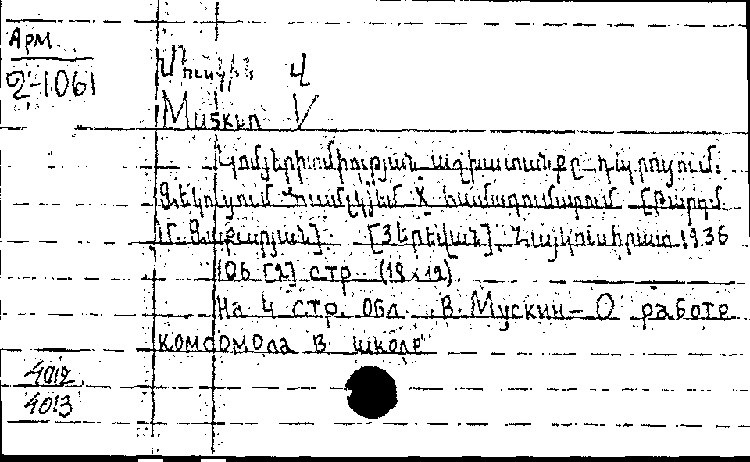 Арм.
2-1061
Մուսկին Վ
Muskin V
Կոմյերիտմիության աշխատանքը դպրոցում.
Զեկուցում Համլկյեմ X համագումարում [Թարգմ.
Մ. Զաքարյան]. [Յերեվան], Հայկուսհրատ, 1936
106 [2] стр. (18×12)
На 4 стр. обл. В. Мускин – О работе
комсомола в школе
4012
4013